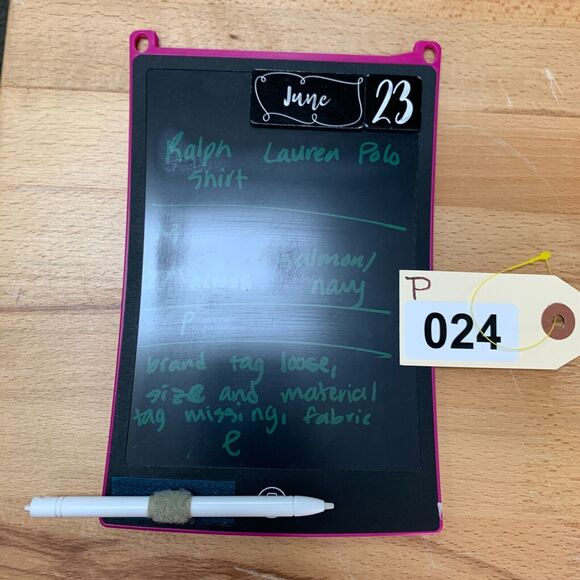 June 23
Ralph Lauren Polo
shirt
salmon/
navy
P
brand tag loose,
size and material
tag missing, fabric
P
024